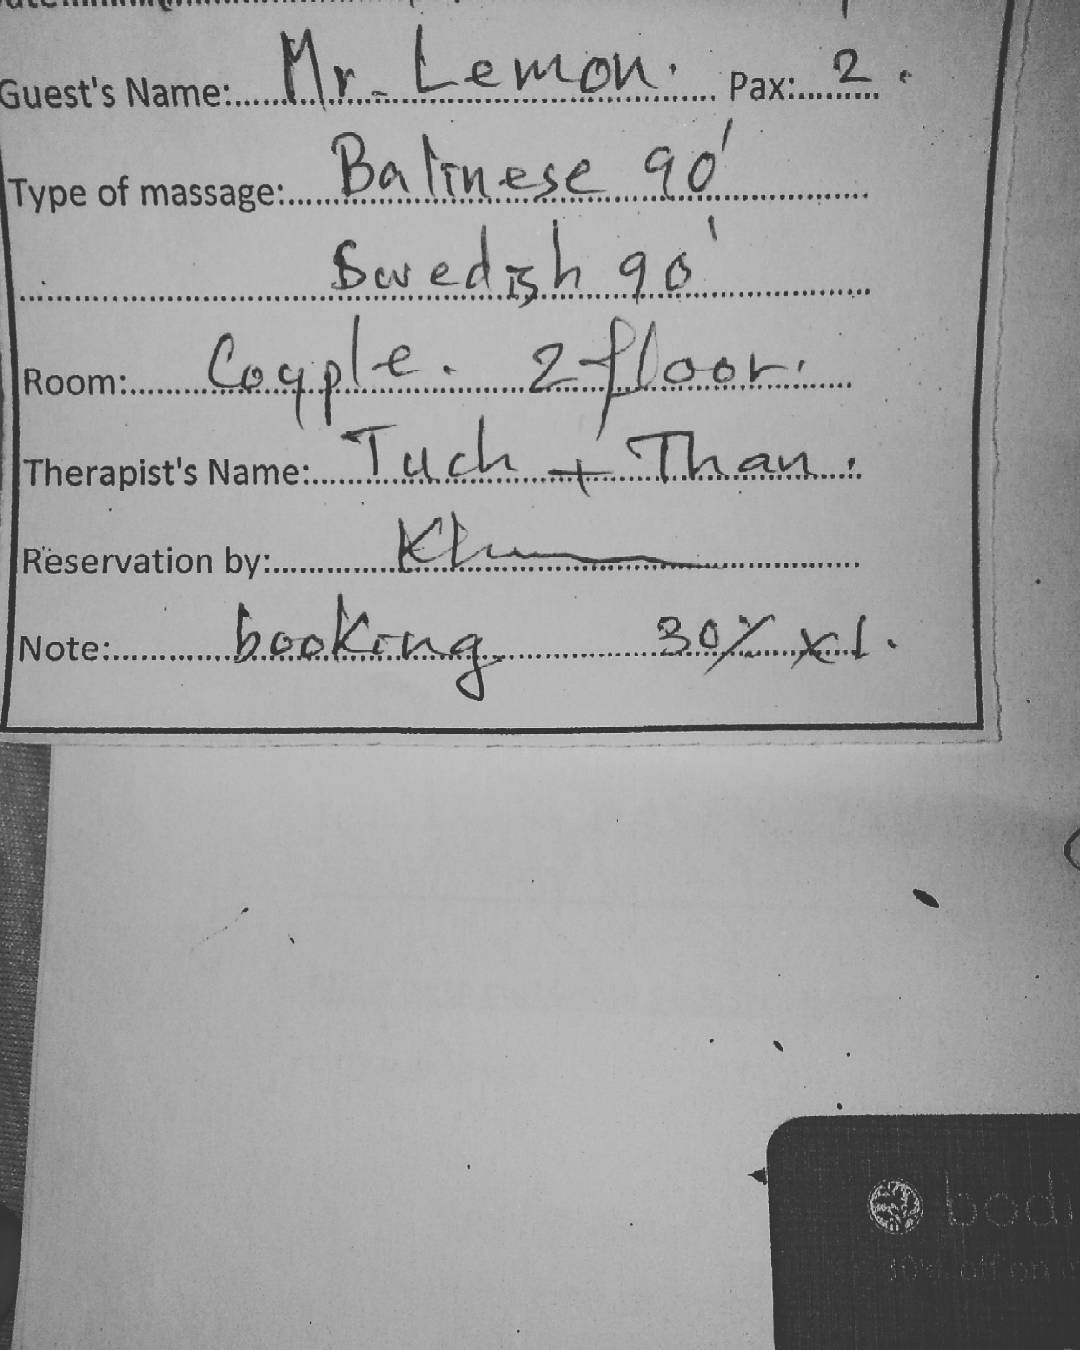 Guest's Name: Mr. Lemon. Pax: 2.
Type of massage: Balinese 90'
Swedish 90'
Room: Couple. 2 floor.
Therapist's Name: Tuch + Than.
Reservation by:
Note: booking 30% x1.
bodi
10% off on